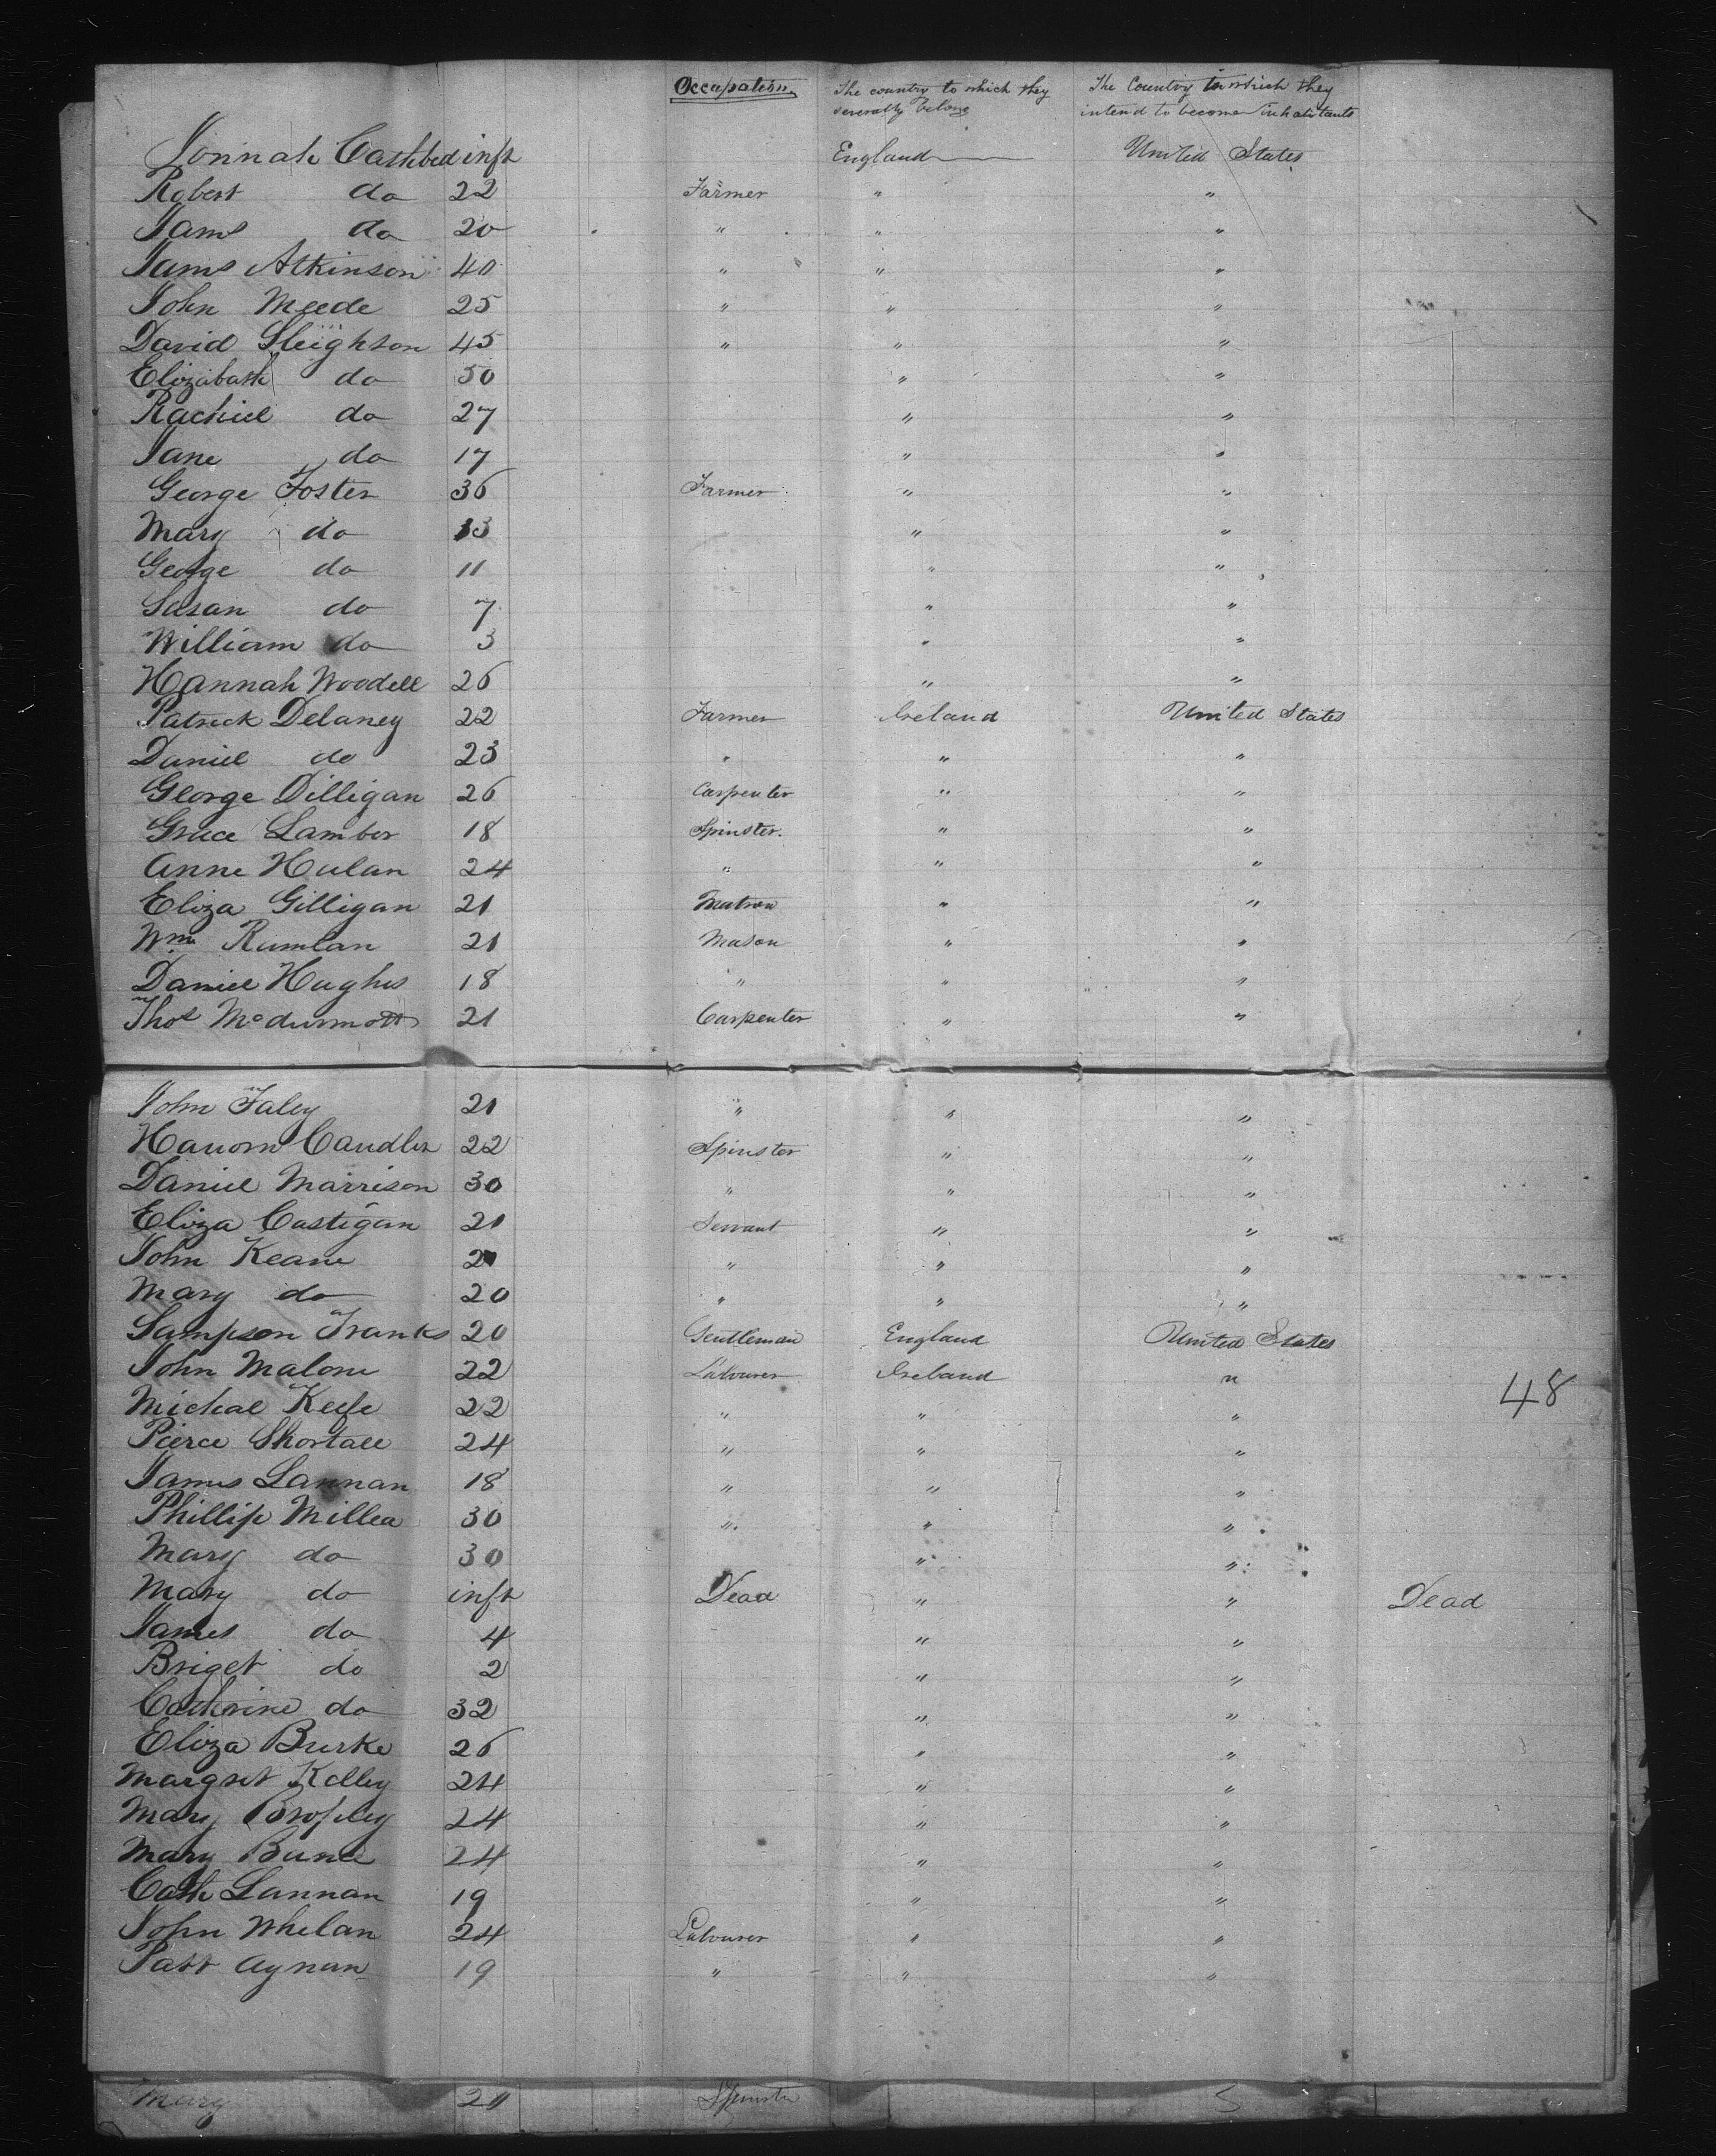 Occupation. The country to which they severally belong The Country to which they intend to become inhabitants
Jonnah Cathbed inft England United States
Robert do 22 Farmer " "
James do 20 " " "
James Atkinson 40 " " "
John Meede 25 " " "
David Sleighson 45 " " "
Elizabath do 50 " "
Rachiel do 27 " "
Jane do 17 " "
George Foster 36 Farmer " "
Mary do 13 " "
George do 11 " "
Susan do 7 " "
William do 3 " "
Hannah Woodell 26 " "
Patrick Delaney 22 Farmer Ireland United States
Daniel do 23 " " "
George Dilligan 26 Carpenter " "
Grace Lambor 18 Spinster. " "
Anne Hulan 24 " " "
Eliza Gilligan 21 Matron " "
Wm Rumlan 21 Mason " "
Daniel Hughes 18 " " "
Thos McDurmott 21 Carpenter " "
John Faley 21 " " "
Candler 22 Spinster " "
Daniel Marrison 30 " " "
Eliza Castigan 21 Servant " "
John Keane " " "
Mary do 20 " " "
Sampson Franks 20 Gentleman England United States
John Malone 22 Labourer Ireland "
48
Michal Keefe 22 " " "
Pierce Shortall 24 " " "
James Lannan 18 " " "
Phillip Millea 30 " " "
Mary do 30 " "
Mary do inft Dead " " Dead
James do 4 " "
Briget do 2 " "
Catherine do 32 " "
Eliza Burke 26 " "
Margret Kelley 24 " "
Mary Bropley 24 " "
Mary Bune 24 " "
Cath Lannan 19 " "
John Whelan 24 Labourer " "
Patt Aynan 19 " " "
Mary 20 Spinster